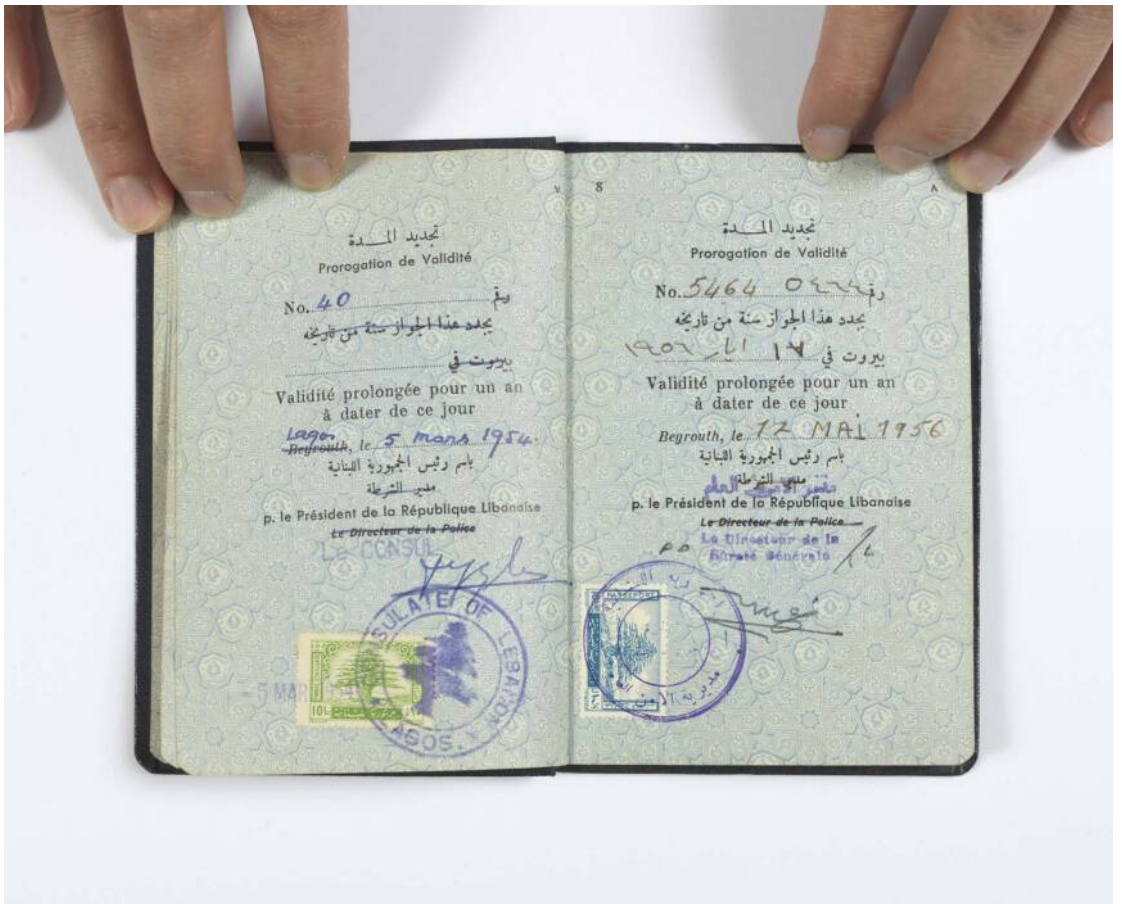 ٧
تجديد المـــدة
Prorogation de Validité
No. 40 رقم
يجدد هذا الجواز سنة من تاريخه
بيروت في
Validité prolongée pour un an
à dater de ce jour
Lagos
Beyrouth, le 5 mars 1954.
باسم رئيس الجمهورية اللبنانية
مدير الشرطة
p. le Président de la République Libanaise
Le Directeur de la Police
Le CONSUL
SULATE OF LEBANON
LAGOS
- 5 MAR
10L
8 ٨
تجديد المـــدة
Prorogation de Validité
No. 5464 ٥٤٦٤ رقم
يجدد هذا الجواز سنة من تاريخه
بيروت في ١٧ ايار ١٩٥٦
Validité prolongée pour un an
à dater de ce jour
Beyrouth, le 17 MAI 1956
باسم رئيس الجمهورية اللبنانية
مدير الشرطة
مدير الامن العام
p. le Président de la République Libanaise
Le Directeur de la Police
Le Directeur de la
Sûreté Générale
PASSEPORT
مديرية الامن العام